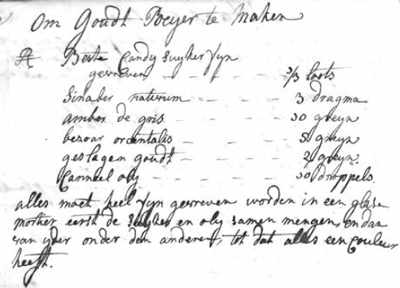 Om Goudt Poeyer te Maken
Beste Candy suyker fyn
gevreven — — — — 3/3 loots
Sinaber naterum — — — 3 dragma
amber de gris — — — 30 greyn
bezoar orientalis — — — 8 greyn
geslagen goudt — — — 2 greyn.
Canneel oly — — — 30 droppels
alles moet heel fyn gevreven worden in een glase
mother eerst de suyker en oly samen mengen, en dan
van yder onder den anderen, tot dat alles een Couleur
heeft.